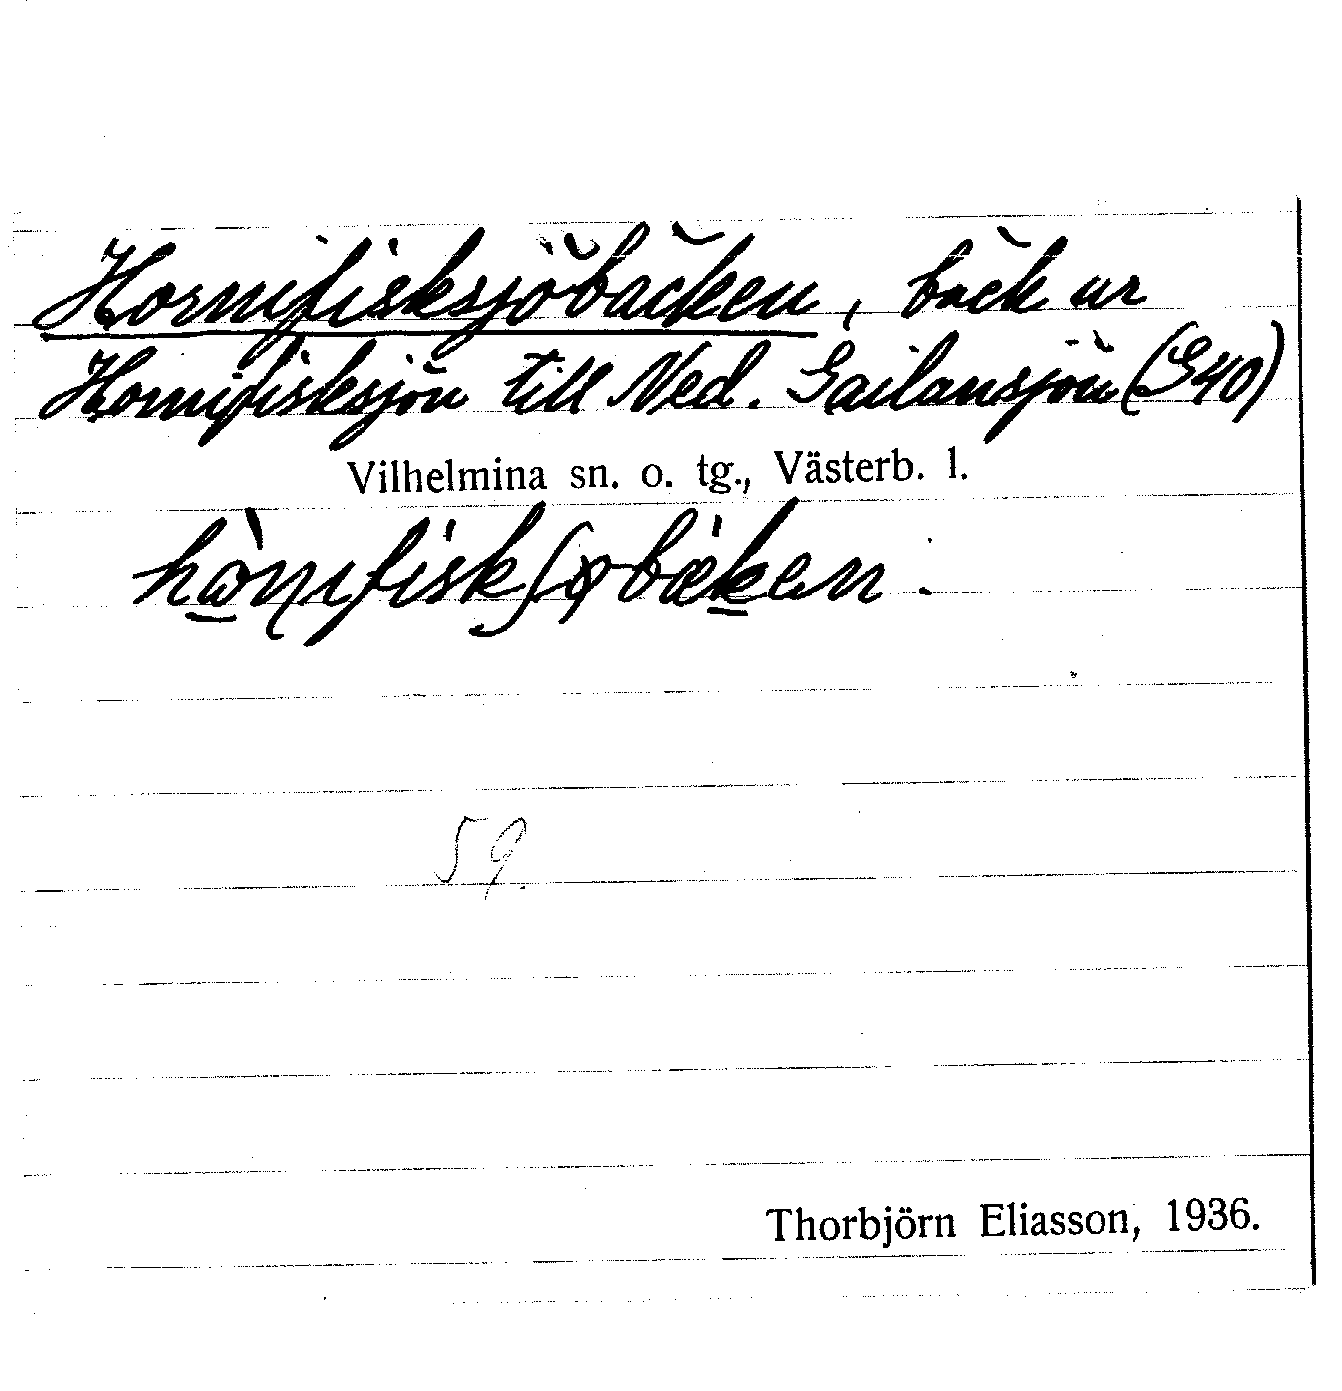 Hornifisksjöbäcken, bäck ur
Hornifisksjön till Ned. Gailansjön (G40)
Vilhelmina sn. o. tg., Västerb. l.
59.
Thorbjörn Eliasson, 1936.